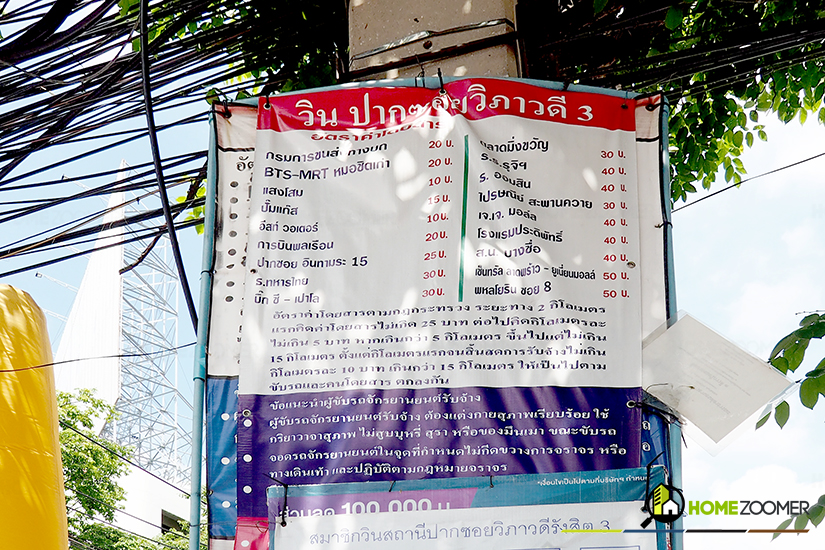 วิน ปากซอยวิภาวดี 3
อัตราค่าโดยสาร
กรมการขนส่งทางบก 20 บ.
BTS-MRT หมอชิตเก่า 20 บ.
แสงโสม 10 บ.
ปั๊มแก๊ส 15 บ.
อีสท์ วอเตอร์ 10 บ.
การบินพลเรือน 20 บ.
ปากซอย อินทามระ 15 25 บ.
ร.ทหารไทย 30 บ.
บิ๊ก ซี - เปาโล 30 บ.
ตลาดมิ่งขวัญ 30 บ.
ร.ร.รุจิฯ 40 บ.
ธ. ออมสิน 40 บ.
ไปรษณีย์ สะพานควาย 30 บ.
เจ.เจ. มอลล์ 40 บ.
โรงแรมประดิพัทธิ์ 40 บ.
ส.น. บางซื่อ 40 บ.
เซ็นทรัล ลาดพร้าว - ยูเนี่ยนมอลล์ 50 บ.
พหลโยธิน ซอย 8 50 บ.
อัตราค่าโดยสารตามกฎกระทรวง ระยะทาง 2 กิโลเมตร
แรกคิดค่าโดยสารไม่เกิน 25 บาท ต่อไปคิดกิโลเมตรละ
ไม่เกิน 5 บาท หากเกินกว่า 5 กิโลเมตร ขึ้นไปแต่ไม่เกิน
15 กิโลเมตร ตั้งแต่กิโลเมตรแรกจนสิ้นสุดการรับจ้างไม่เกิน
กิโลเมตรละ 10 บาท เกินกว่า 15 กิโลเมตร ให้เป็นไปตาม
ขับรถและคนโดยสาร ตกลงกัน
ข้อแนะนำผู้ขับรถจักรยานยนต์รับจ้าง
ผู้ขับรถจักรยานยนต์รับจ้าง ต้องแต่งกายสุภาพเรียบร้อย ใช้
กริยาวาจาสุภาพ ไม่สูบบุหรี่ สุรา หรือของมึนเมา ขณะขับรถ
จอดรถจักรยานยนต์ในจุดที่กำหนดไม่กีดขวางการจราจร หรือ
ทางเดินเท้า และปฏิบัติตามกฎหมายจราจร
*เงื่อนไขเป็นไปตามที่บริษัทฯ กำหนด
ส่วนลด 100,000 บ.
สมาชิกวินสถานีปากซอยวิภาวดีรังสิต 3
HOMEZOOMER